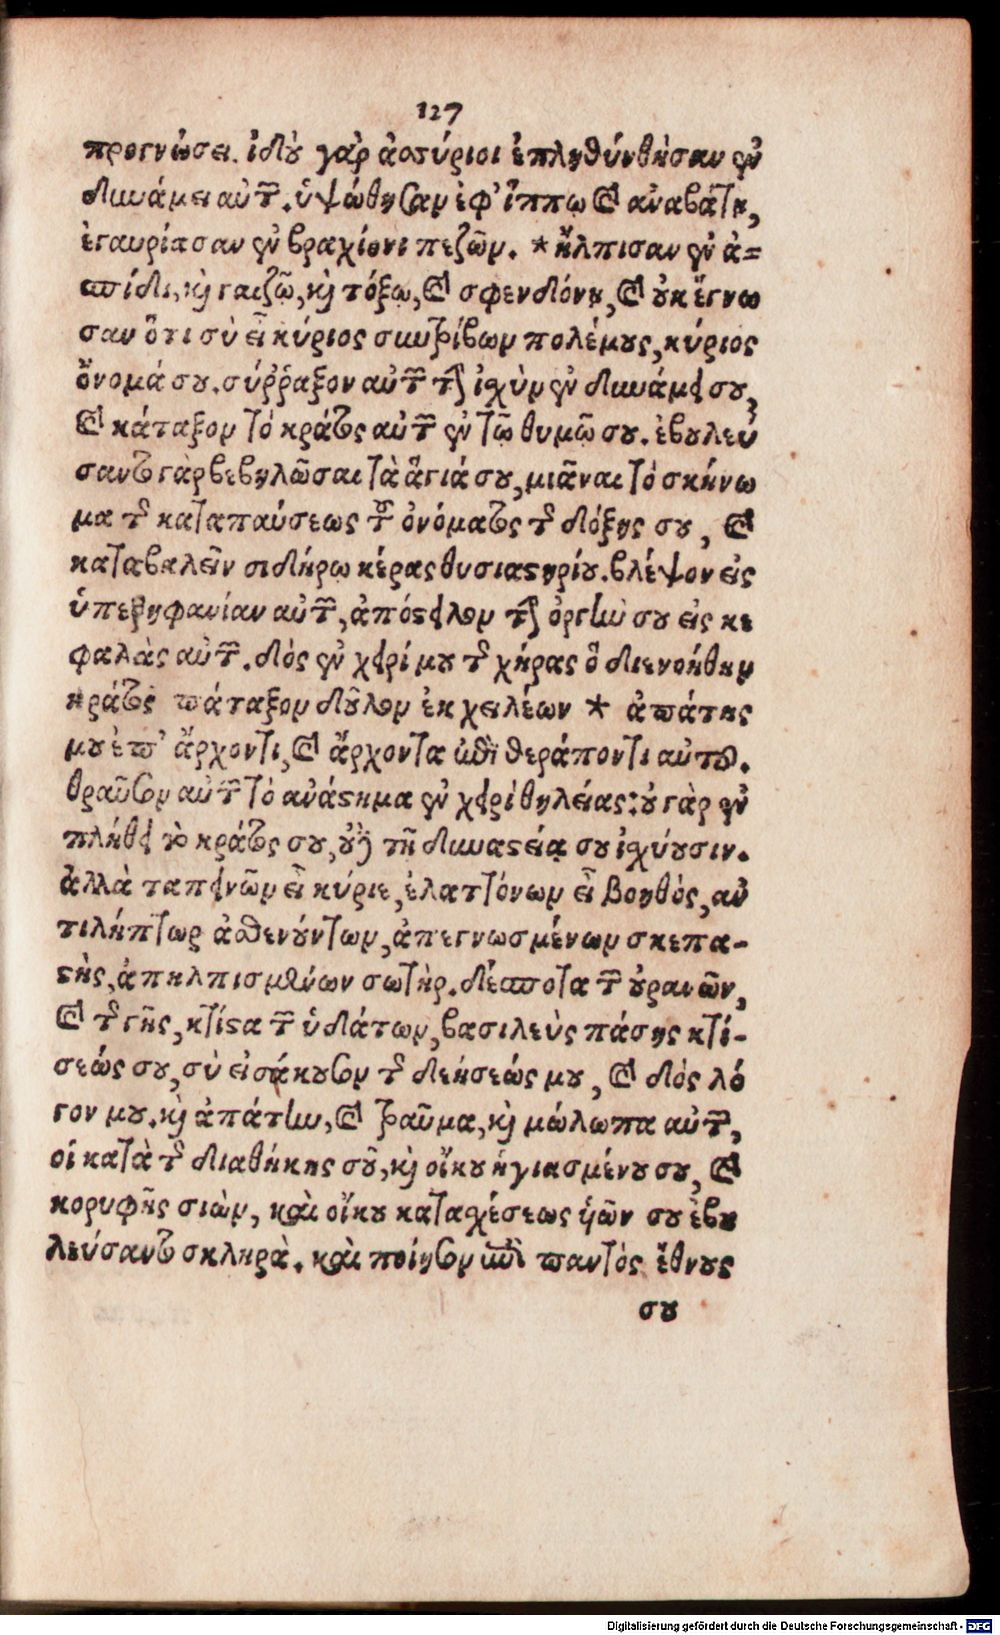 127
προγνώσει. ἰδοὺ γὰρ ἀσσύριοι ἐπληθύνθησαν ἐν
δυνάμει αὐτῶν. ὑψώθησαν ἐφ' ἵππῳ καὶ ἀναβάτῃ,
ἐγαυρίασαν ἐν βραχίονι πεζῶν. * ἤλπισαν ἐν ἀ=
σπίδι, καὶ γαιζῷ, καὶ τόξῳ, καὶ σφενδόνῃ, καὶ οὐκ ἔγνω
σαν ὅτι σὺ εἶ κύριος συντρίβων πολέμους, κύριος
ὄνομά σου. σύῤῥαξον αὐτῶν τὴν ἰσχὺν ἐν δυνάμει σου,
καὶ κάταξον τὸ κράτος αὐτῶν ἐν τῷ θυμῷ σου. ἐβουλεύ
σαντο γὰρ βεβηλῶσαι τὰ ἅγιά σου, μιᾶναι τὸ σκήνω
μα τῆς καταπαύσεως τοῦ ὀνόματος τῆς δόξης σου, καὶ
καταβαλεῖν σιδήρῳ κέρας θυσιαστηρίου. βλέψον εἰς
ὑπερηφανίαν αὐτῶν, ἀπόστειλον τὴν ὀργὴν σου εἰς κε
φαλὰς αὐτῶν. δὸς ἐν χειρί μου τῆς χήρας ὃ διενοήθην
κράτος πάταξον δοῦλον ἐκ χειλέων * ἀπάτης
μου ἐπ' ἄρχοντι, καὶ ἄρχοντα ἐπὶ θεράποντι αὐτοῦ.
θραῦσον αὐτῶν τὸ ἀνάστημα ἐν χειρὶ θηλείας: οὐ γὰρ ἐν
πλήθει τὸ κράτος σου, οὐδὲ τῇ δυναστείᾳ σου ἰσχύουσιν.
ἀλλὰ ταπεινῶν εἶ κύριε, ἐλαττόνων εἶ βοηθὸς, ἀν
τιλήπτωρ ἀσθενούντων, ἀπεγνωσμένων σκεπα-
στὴς, ἀπηλπισμένων σωτὴρ. δέσποτα τῶν οὐρανῶν,
καὶ τῆς γῆς, κτίστα τῶν ὑδάτων, βασιλεὺς πάσης κτί-
σεώς σου, σὺ εἰσάκουσον τῆς δεήσεώς μου, καὶ δὸς λό
γον μου. καὶ ἀπάτην, καὶ τραῦμα, καὶ μώλωπα αὐτῶν,
οἱ κατὰ τῆς διαθήκης σοῦ, καὶ οἴκου ἡγιασμένου σου, καὶ
κορυφῆς σιὼν, καὶ οἴκου κατασχέσεως ὑῶν σου ἐβου
λεύσαντο σκληρὰ. καὶ ποίησον ἐπὶ παντὸς ἔθνους
σου
Digitalisierung gefördert durch die Deutsche Forschungsgemeinschaft - DFG